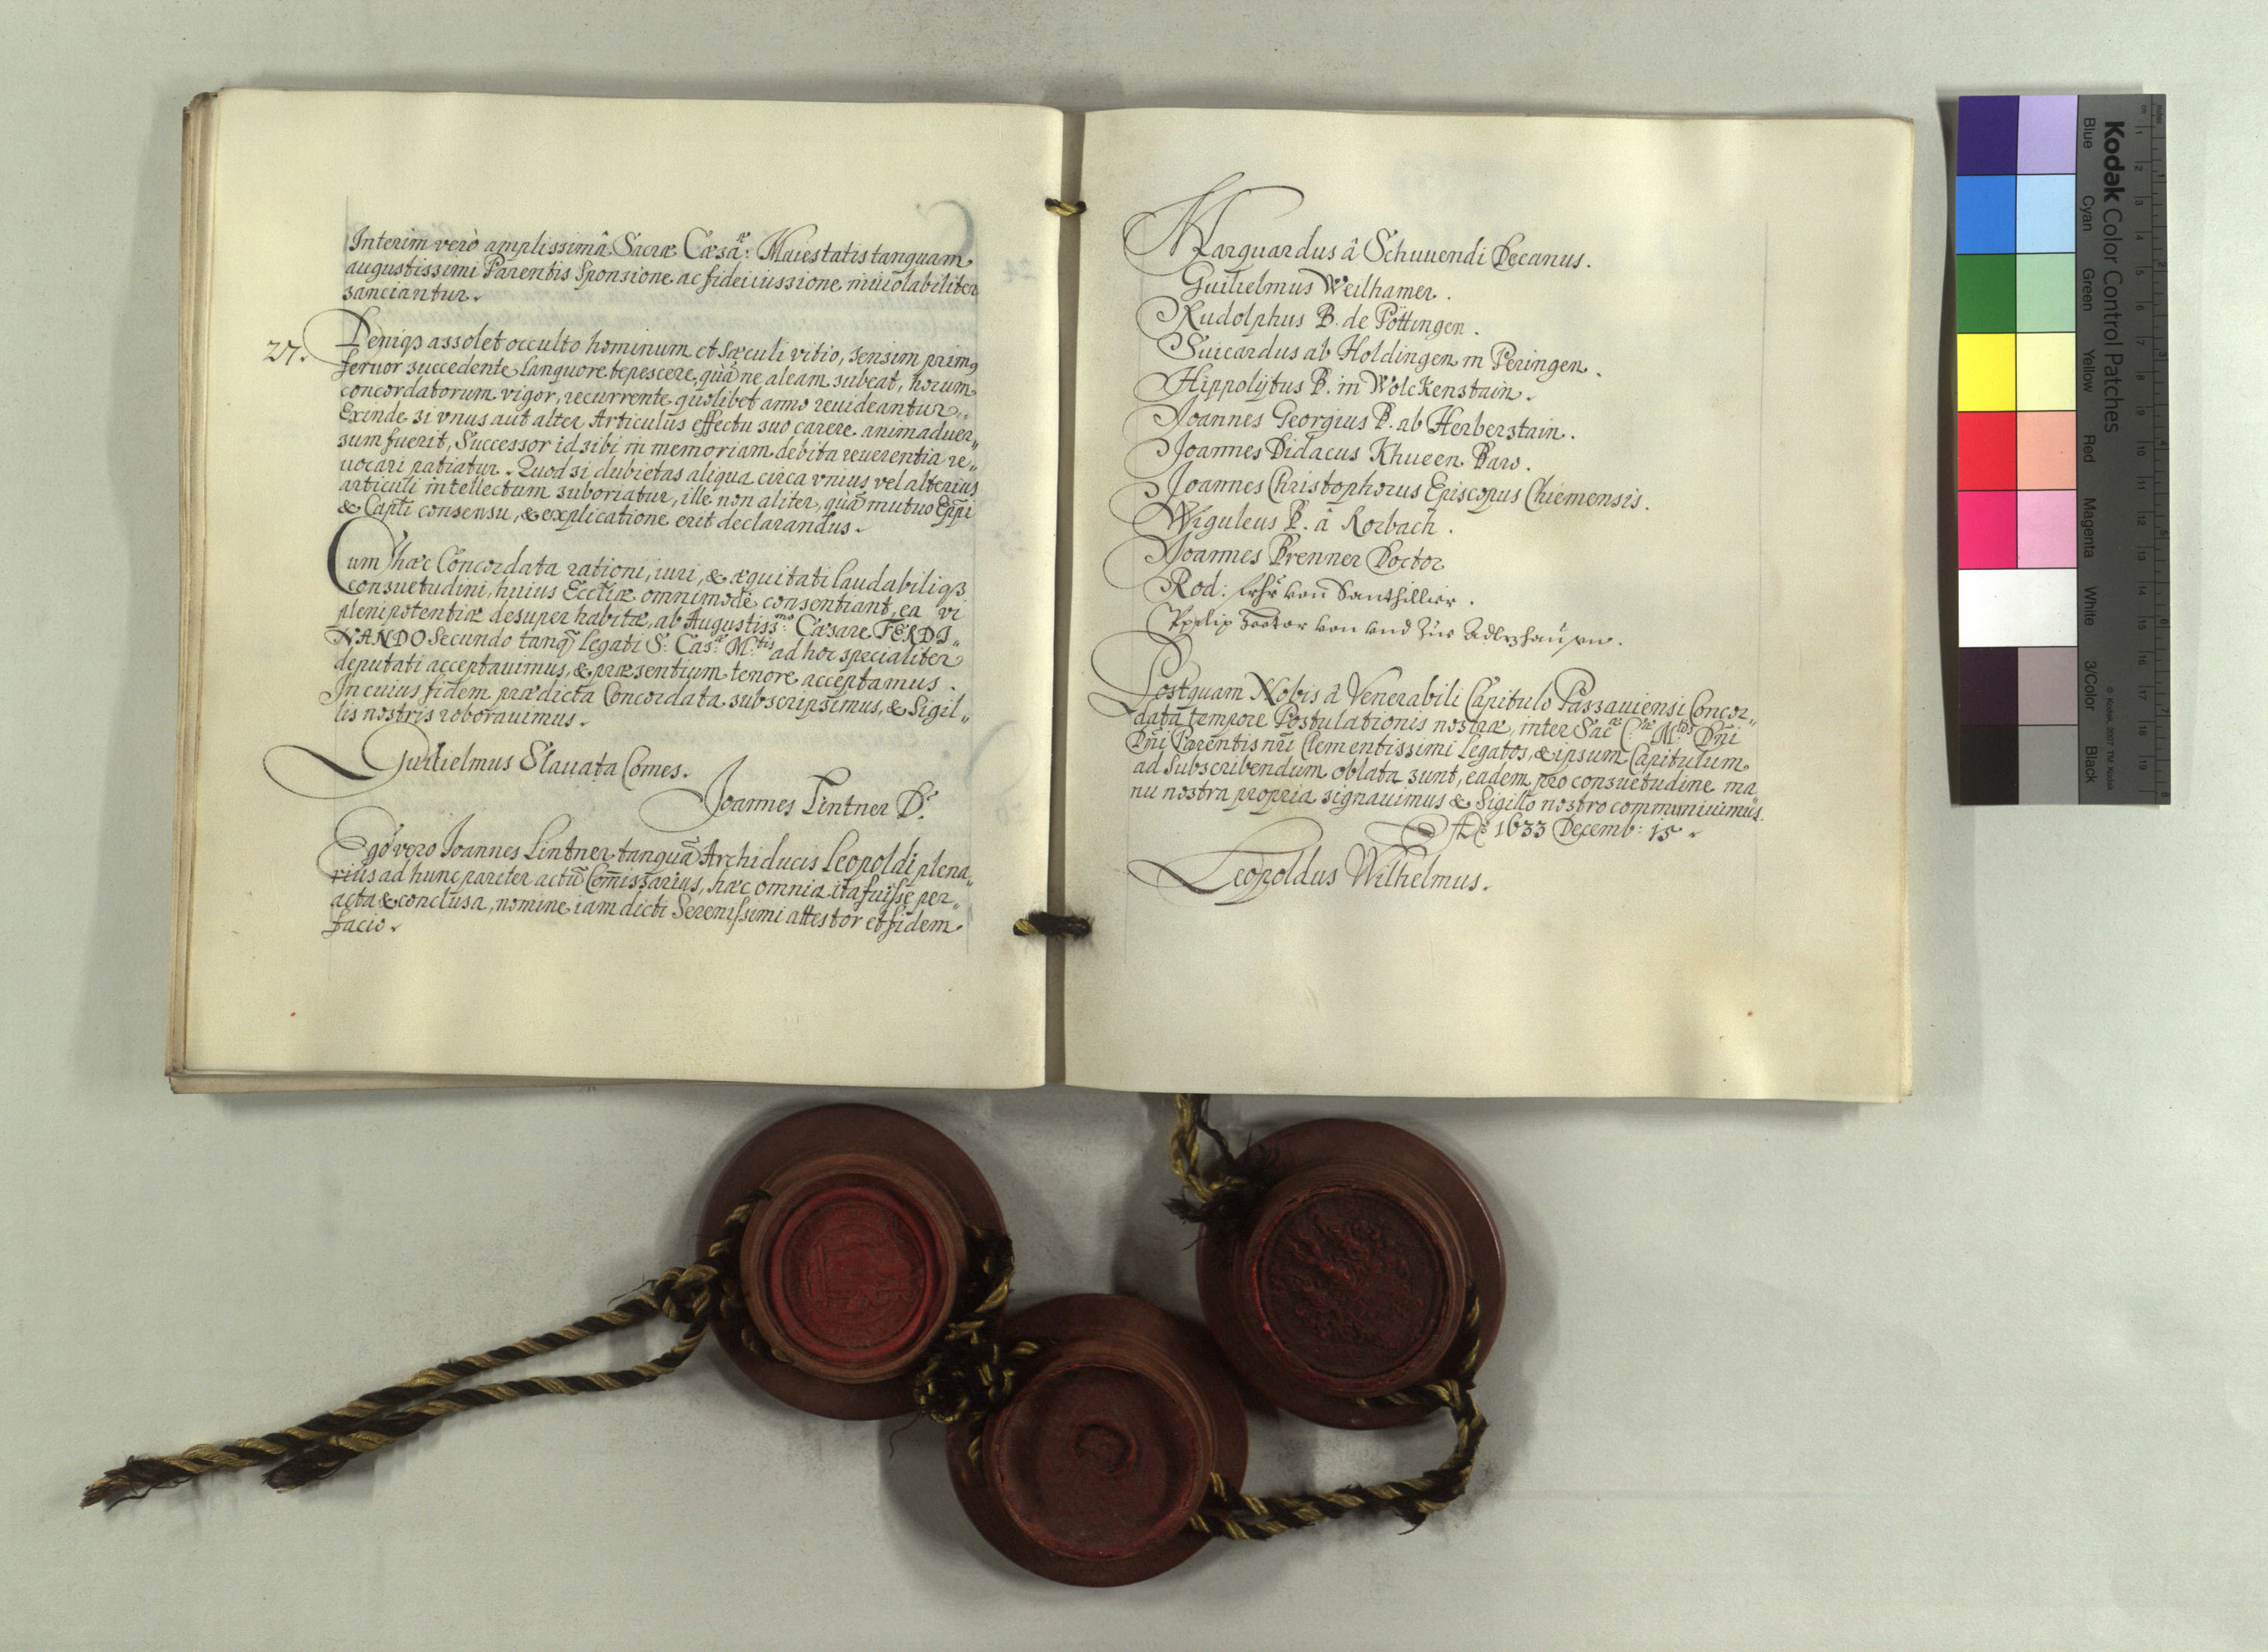 Interim verò amplissimâ Sacræ Cæsᵃ̈: Maiestatis tanquam
augustissimi Parentis Sponsione ac fideiiussione inuiolabiliter
sanciantur.
27. Deniqȝ assolet occulto hominum et sæculi vitio, sensim primꝰ
feruor succedente languore tepescere, quâ ne aleam subeat, horum
concordatorum vigor, recurrente quolibet anno reuideantur.
Exinde si vnus aut alter Articulus effectu suo carere animaduer„
sum fuerit, Successor id sibi in memoriam debita reuerentia re„
uocari patiatur. Quod si dubietas aliqua circa vnius vel alterius
articuli intellectum suboriatur, ille non aliter, quā mutuo Epi̅
& Capti̅ consensu, & explicatione erit declarandus.
Cum hæc Concordata rationi, iuri, & æquitati laudabiliqȝ
consuetudini, huius Eccti̅æ omnimodè consentiant, ea vi
plenipotentiæ desuper habitæ, ab Augustiss:ᵐᵒ Cæsare FERDI„
NANDO Secundo tanq̅ legati S: Cæs:ᵃᵉ M:ᵗⁱˢ ad hoc specialiter
deputati acceptauimus, & præsentium tenore acceptamus.
In cuius fidem prædicta Concordata subscripsimus, & Sigil„
lis nostris roborauimus.
Guilielmus Slauata Comes.
Joannes Lintner D.ʳ
Ego vero Joannes Lintner tanquā Archiducis Leopoldi plena„
rius ad hunc pariter actū Com̅issarius, hæc omnia ita fuisse per„
acta & conclusa, nomine iam dicti Serenissimi attestor et fidem
facio.
Marquardus â Schuuendi Decanus.
Guilielmus Weilhamer.
Rudolphus B. de Pöttingen.
Suicardus ab Holdingen in Peringen.
Hippolÿtus B. in Wolckenstain.
Joannes Georgius B. ab Herberstain.
Joannes Didacus Khueen Baro.
Joannes Christophorus Episcopus Chiemensis.
Wiguleus B. â Rorbach.
Joannes Brenner Doctor
Rod: frhr von Santhillier.
von vnd Zur
Postquam Nobis â Venerabili Capitulo Passauiensi Concor„
data tempore Postulationis nostræ, inter Sacᵃᵉ C:ᵃᵉ M:ᵗⁱˢ Dn̅i
Dn̅i Parentis nr̅i Clementissimi Legatos, & ipsum Capitulum
ad Subscribendum oblata sunt, eadem pro consuetudine ma
nu nostra propria signauimus & Sigillo nostro communiuimus.
Aᵒ 1633 Decemb: 15.
Leopoldus Wilhelmus.
Kodak Color Control Patches
Blue
Cyan
Green
Yellow
Red
Magenta
White
3/Color
Black
© Kodak, 2007 TM: Kodak